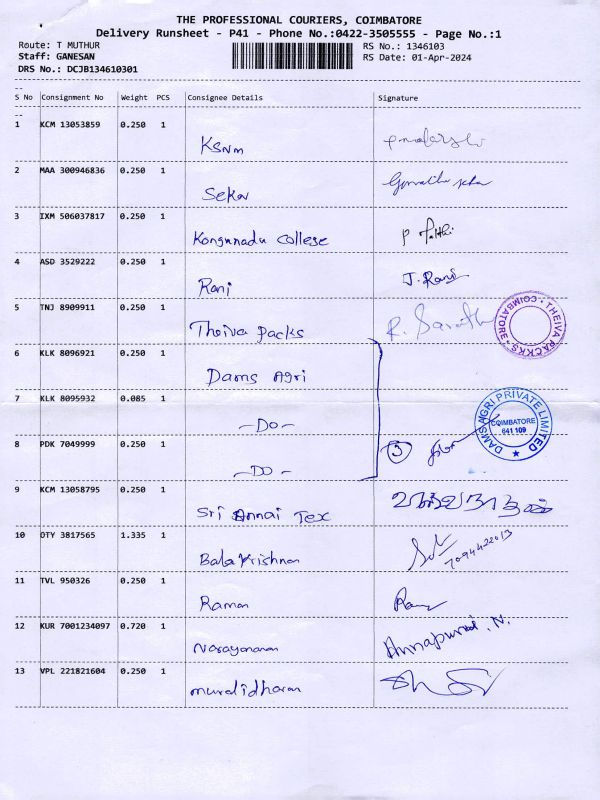 THE PROFESSIONAL COURIERS, COIMBATORE
Delivery Runsheet - P41 - Phone No.:0422-3505555 - Page No.:1
Route: T MUTHUR RS No.: 1346103
Staff: GANESAN RS Date: 01-Apr-2024
DRS No.: DCJB134610301
S No Consignment No Weight PCS Consignee Details Signature
1 KCM 13053859 0.250 1
KSNM
2 MAA 300946836 0.250 1
Sekar
3 IXM 506037817 0.250 1
Kongunadu College
4 ASD 3529222 0.250 1
Rani J. Rani
5 TNJ 8909911 0.250 1
Theiva Packs R. Sarath
THEIVA PACKKS COIMBATORE
6 KLK 8096921 0.250 1
Dams Agri
7 KLK 8095932 0.085 1
-Do-
DAMS AGRI PRIVATE LIMITED
COIMBATORE
641 109
8 PDK 7049999 0.250 1
-Do- 3
9 KCM 13058795 0.250 1
Sri Annai Tex
10 OTY 3817565 1.335 1
Bala Krishnan 7094422013
11 TVL 950326 0.250 1
Raman
12 KUR 7001234097 0.720 1
Narayanan Annapurani. N.
13 VPL 221821604 0.250 1
muralidharan